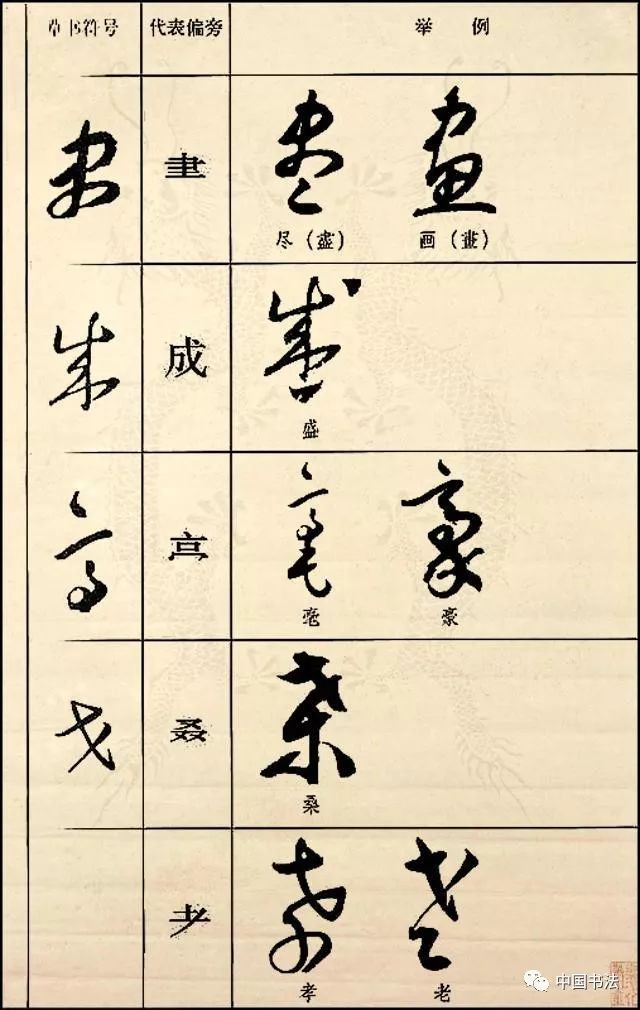 草书符号 代表偏旁 举例
尽（盡） 画（畫）
成
盛
亯
毫 豪
叒
桑
耂
孝 老
中国书法